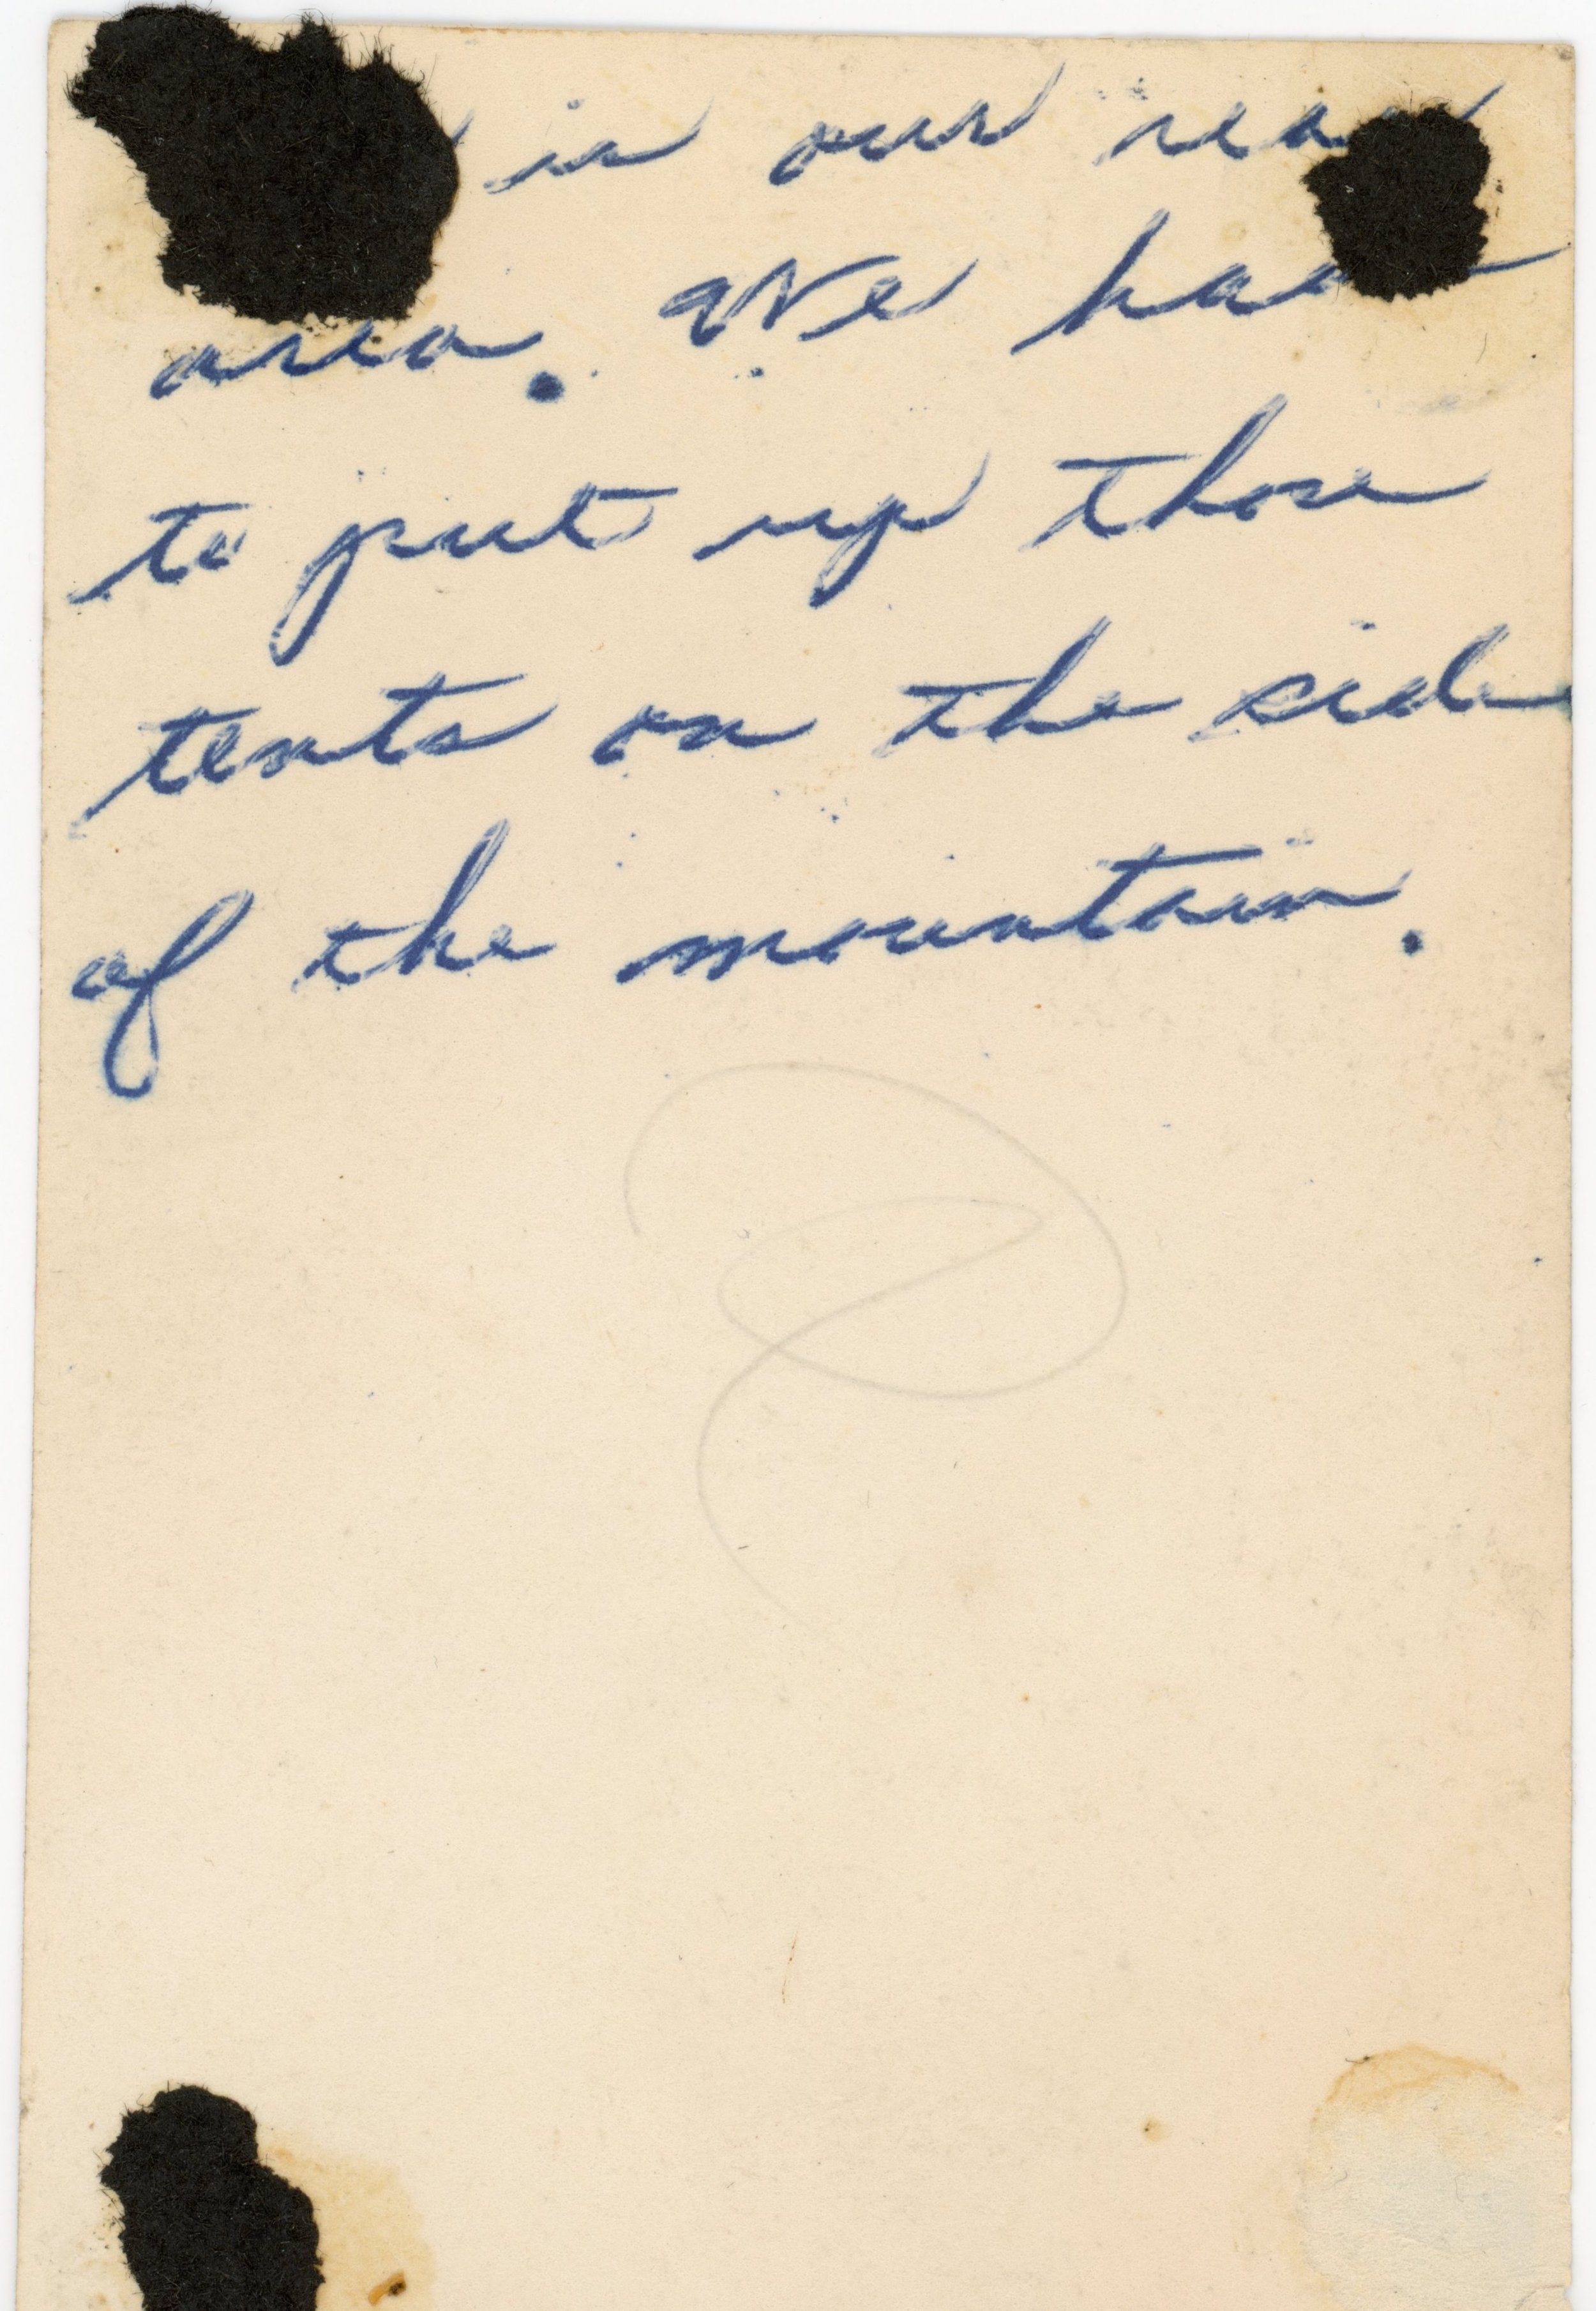 in our rear
area. We had
to put up those
tents on the side
of the mountain.